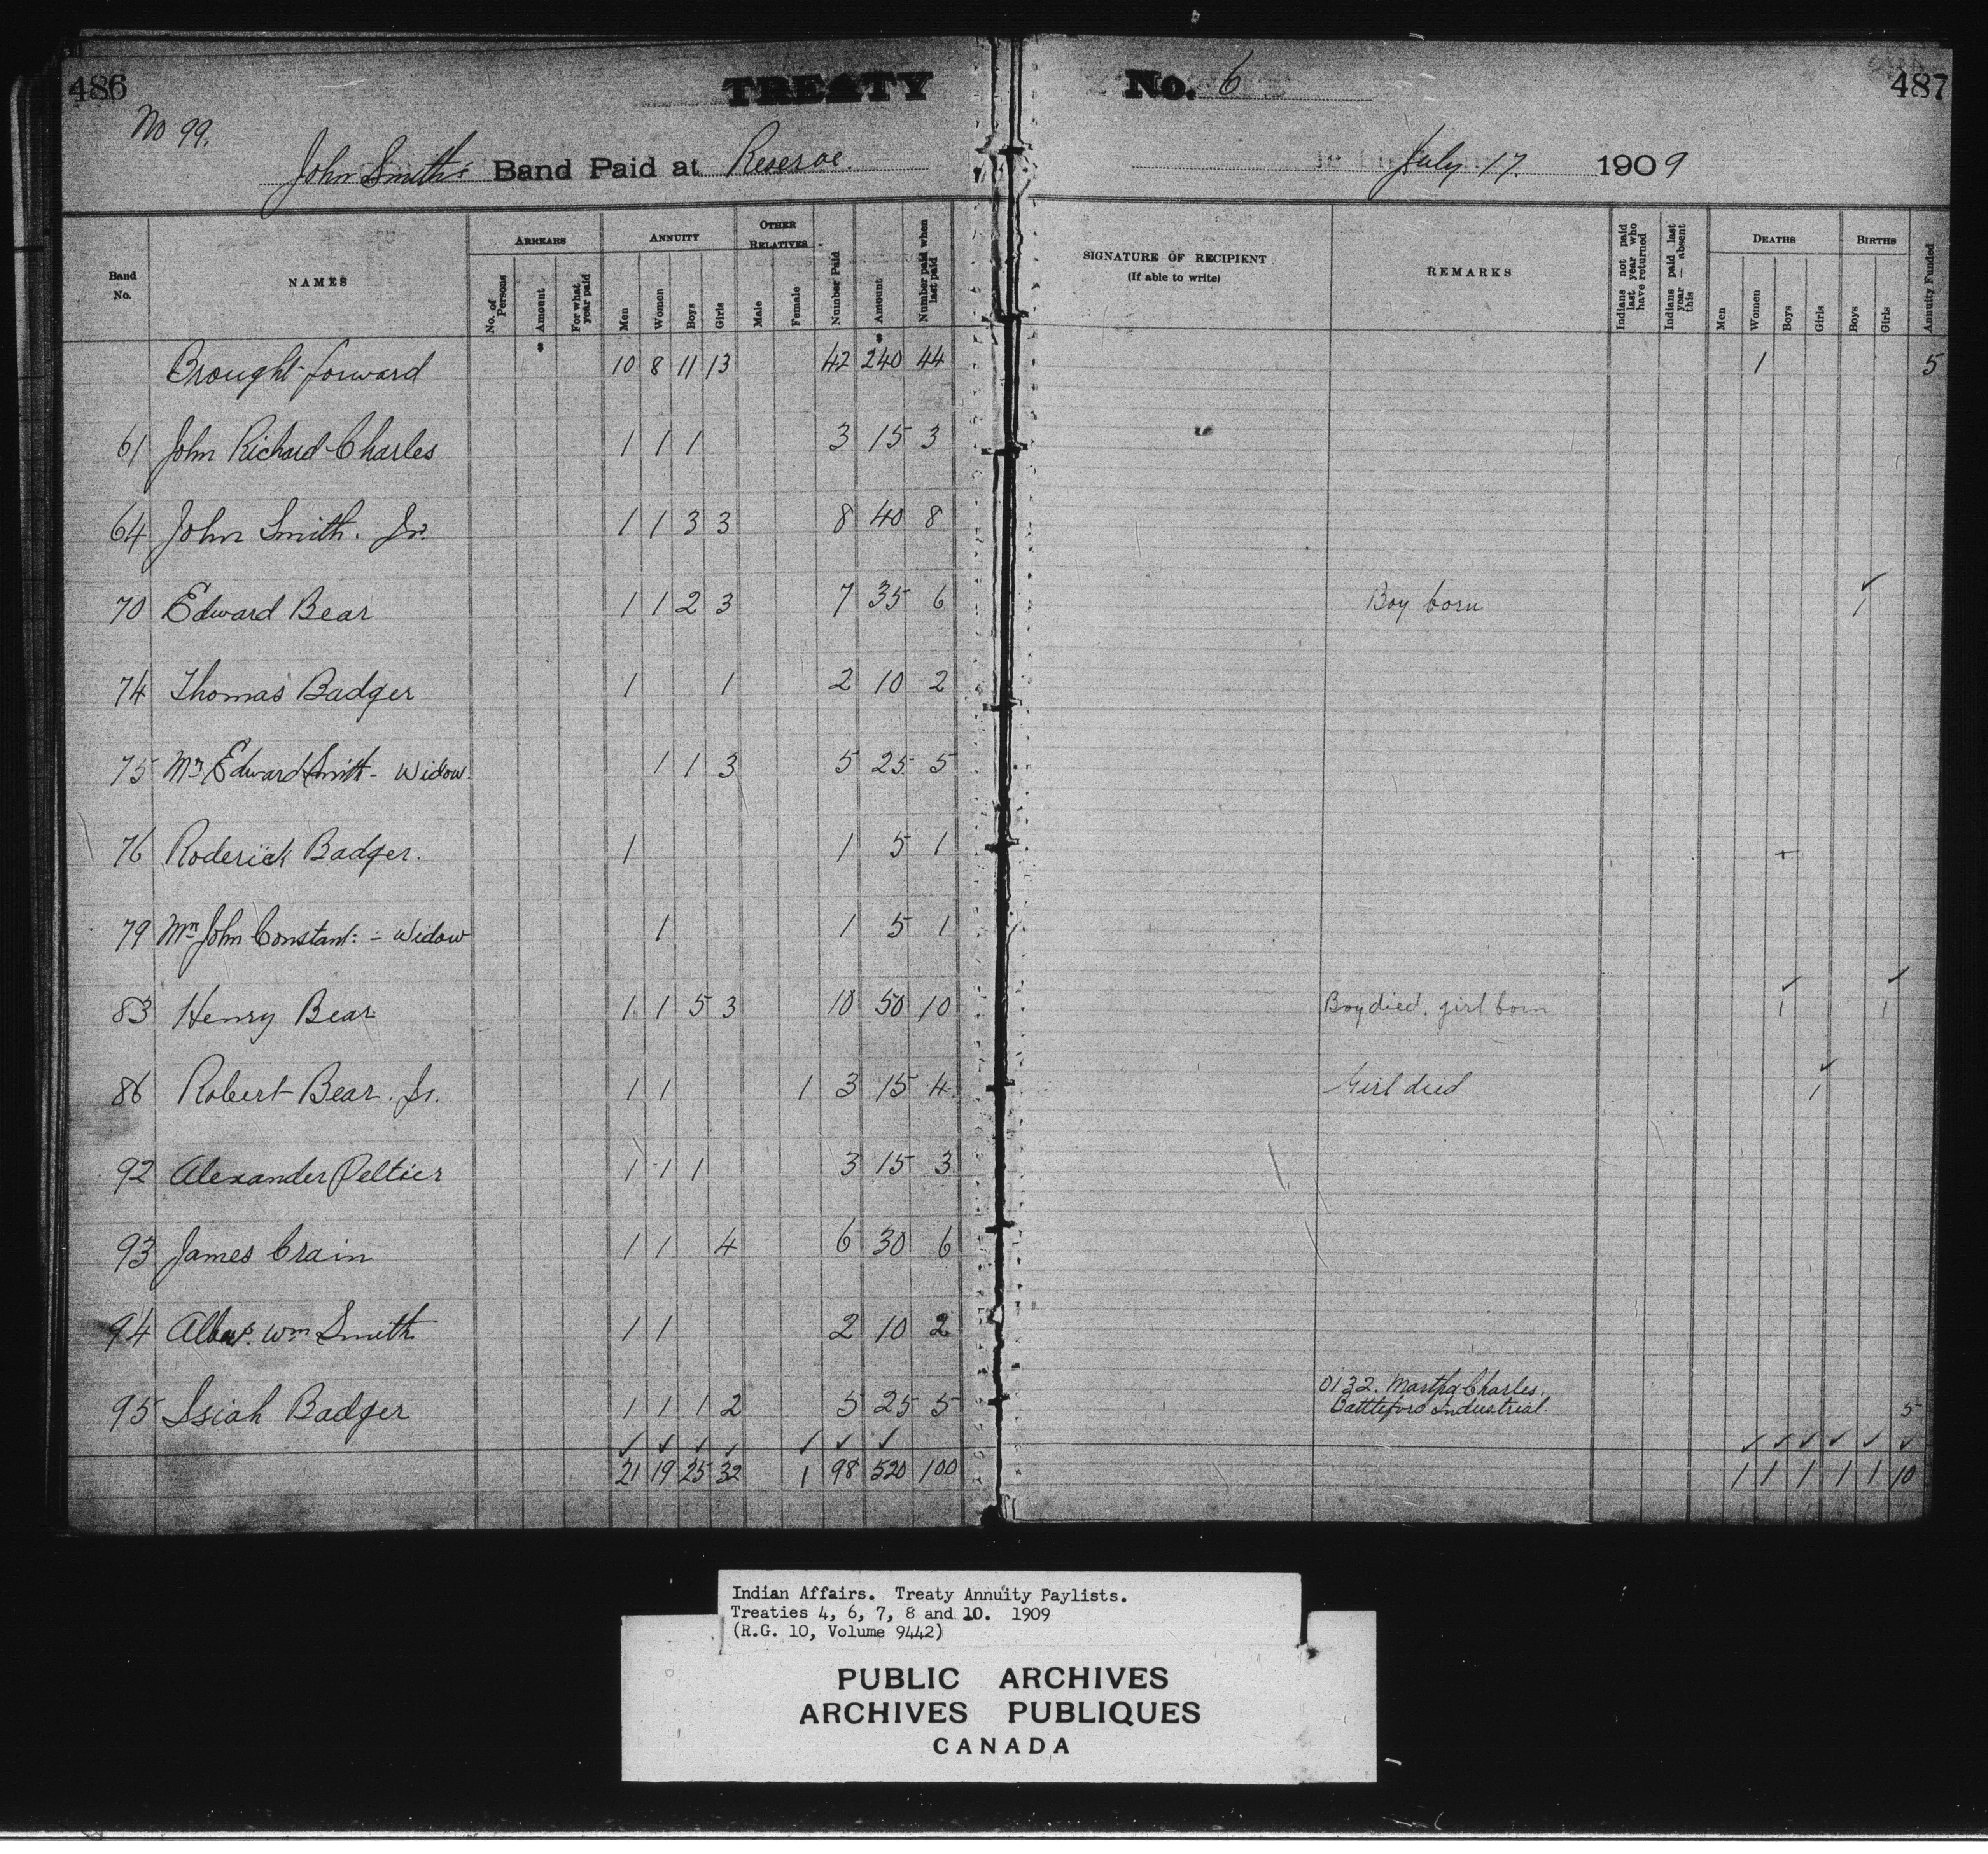 486 TREATY No. 6 487
No 99.
John Smith's Band Paid at Reserve. July 17. 1909
Band No. NAMES ARREARS No. of Persons Amount For what year paid ANNUITY Men Women Boys Girls OTHER RELATIVES Male Female Number Paid Amount Number paid when last paid SIGNATURE OF RECIPIENT (If able to write) REMARKS Indians not paid last year who have returned Indians paid last year — absent this DEATHS Men Women Boys Girls BIRTHS Boys Girls Annuity Funded
Brought forward 10 8 11 13 42 240 44 1 5
61 John Richard Charles 1 1 1 3 15 3
64 John Smith. Jr. 1 1 3 3 8 40 8
70 Edward Bear 1 1 2 3 7 35 6 Boy born 1
74 Thomas Badger 1 1 2 10 2
75 Mrs Edward Smith - Widow. 1 1 3 5 25 5
76 Roderick Badger. 1 1 5 1
79 Mrs John Constant: - Widow 1 1 5 1
83 Henry Bear 1 1 5 3 10 50 10 Boy died. girl born 1 1
86 Robert Bear. Jr. 1 1 1 3 15 4 Girl died 1
92 Alexander Peltier 1 1 1 3 15 3
93 James Crain 1 1 4 6 30 6
94 Wm Smith 1 1 2 10 2
95 Isiah Badger 1 1 1 2 5 25 5 0132. Martha Charles.
Battleford Industrial. 5
21 19 25 32 1 98 520 100 1 1 1 1 1 10
Indian Affairs. Treaty Annuity Paylists.
Treaties 4, 6, 7, 8 and 10. 1909
(R.G. 10, Volume 9442)
PUBLIC ARCHIVES
ARCHIVES PUBLIQUES
CANADA